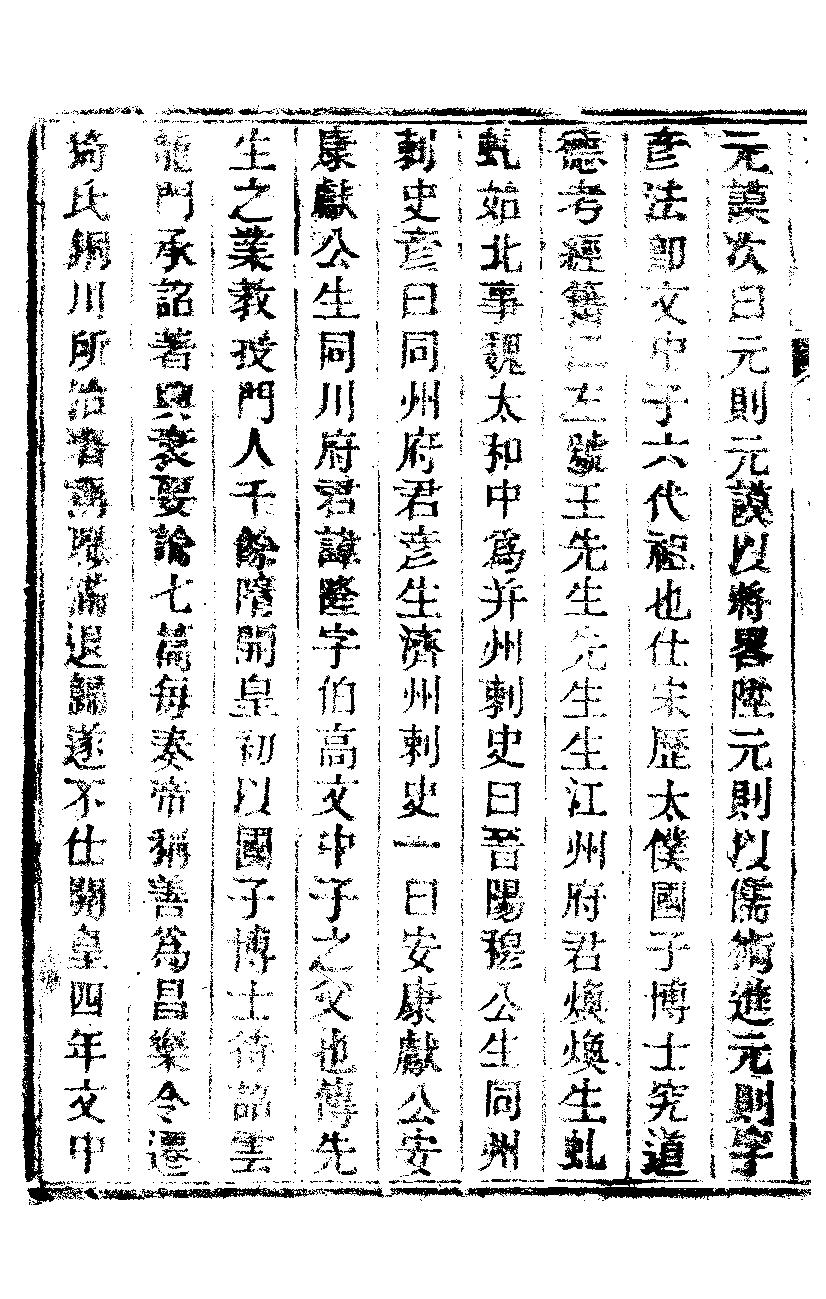 元謨次曰元則元謨以將畧陞元則以儒術進元則字
彥法即文中子六代祖也仕宋歷太僕國子博士究道
德考經籍仁左號王先生先生生江州府君煥煥生虬
虬如北事魏太和中爲并州刺史曰晉陽穆公生同州
刺史彥曰同州府君彥生濟州刺史一曰安康獻公安
康獻公生同川府君諱隆字伯高文中子之父也傳先
生之業教授門人千餘隋開皇初以國子博士待詔雲
龍門承詔著興衰要論七篇每奏帝稱善爲昌樂令遷
猗氏銅川所治著稱秩滿退歸遂不仕開皇四年文中